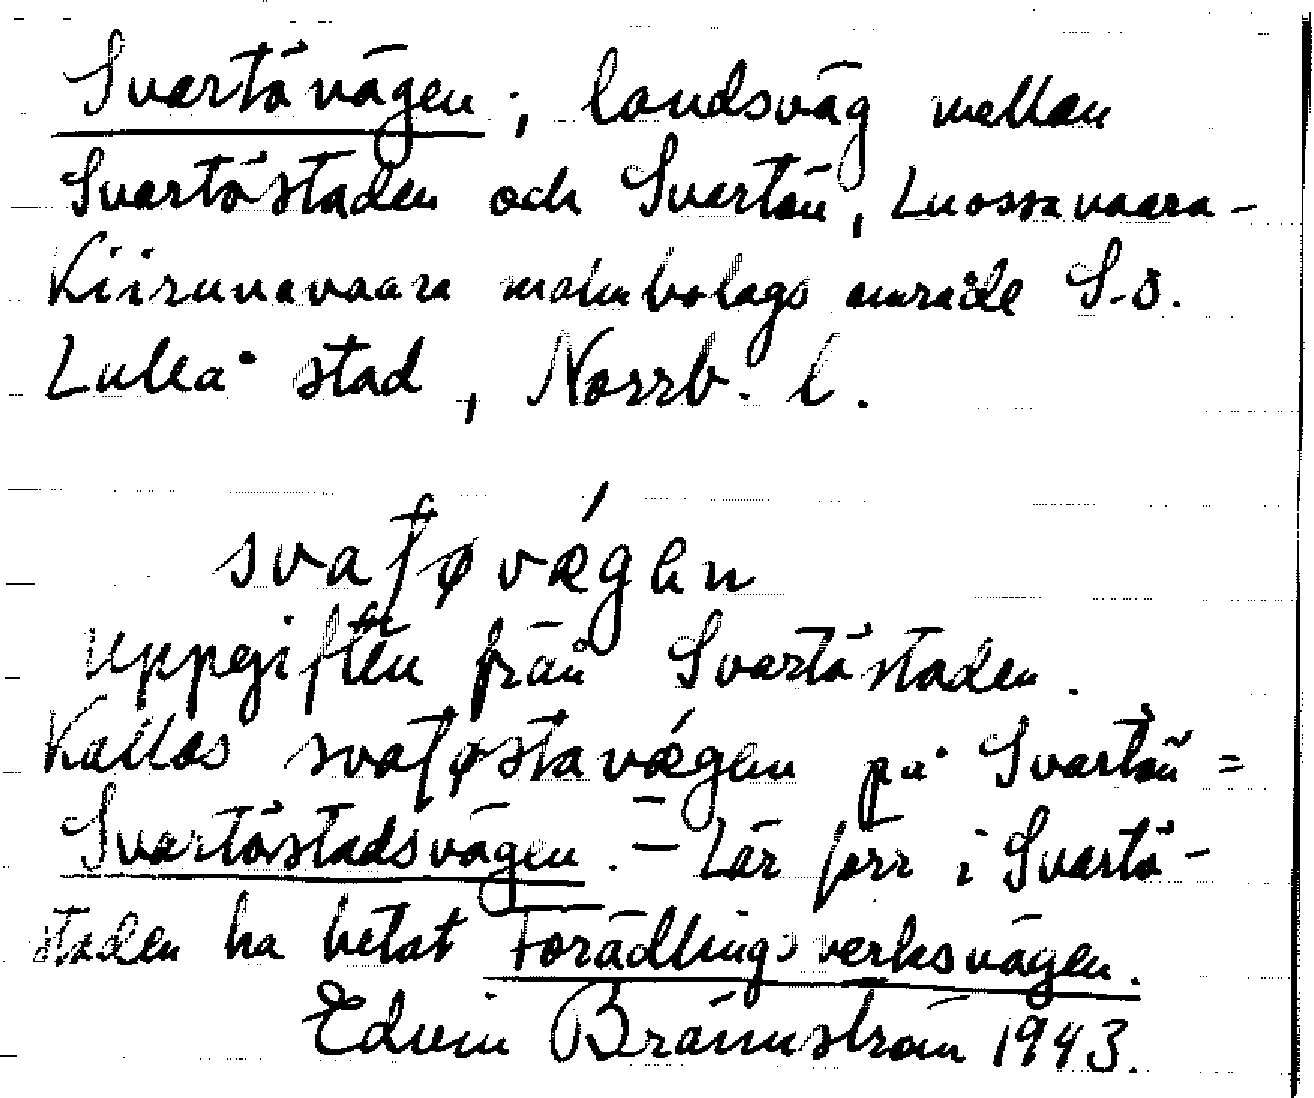 Svartövägen; landsväg mellan
Svartöstaden och Svartön, Luossavaara-
Kiirunavaara malmbolags område S.ö.
Luleå stad, Norrb. l.
svaʈøvǽgen
Uppgiften från Svartöstaden.
Kallas svaʈøstavǽgen på Svartön =
Svartöstadsvägen. – Lär förr i Svartö-
staden ha hetat Förädlingsverksvägen.
Edvin Brännström 1943.